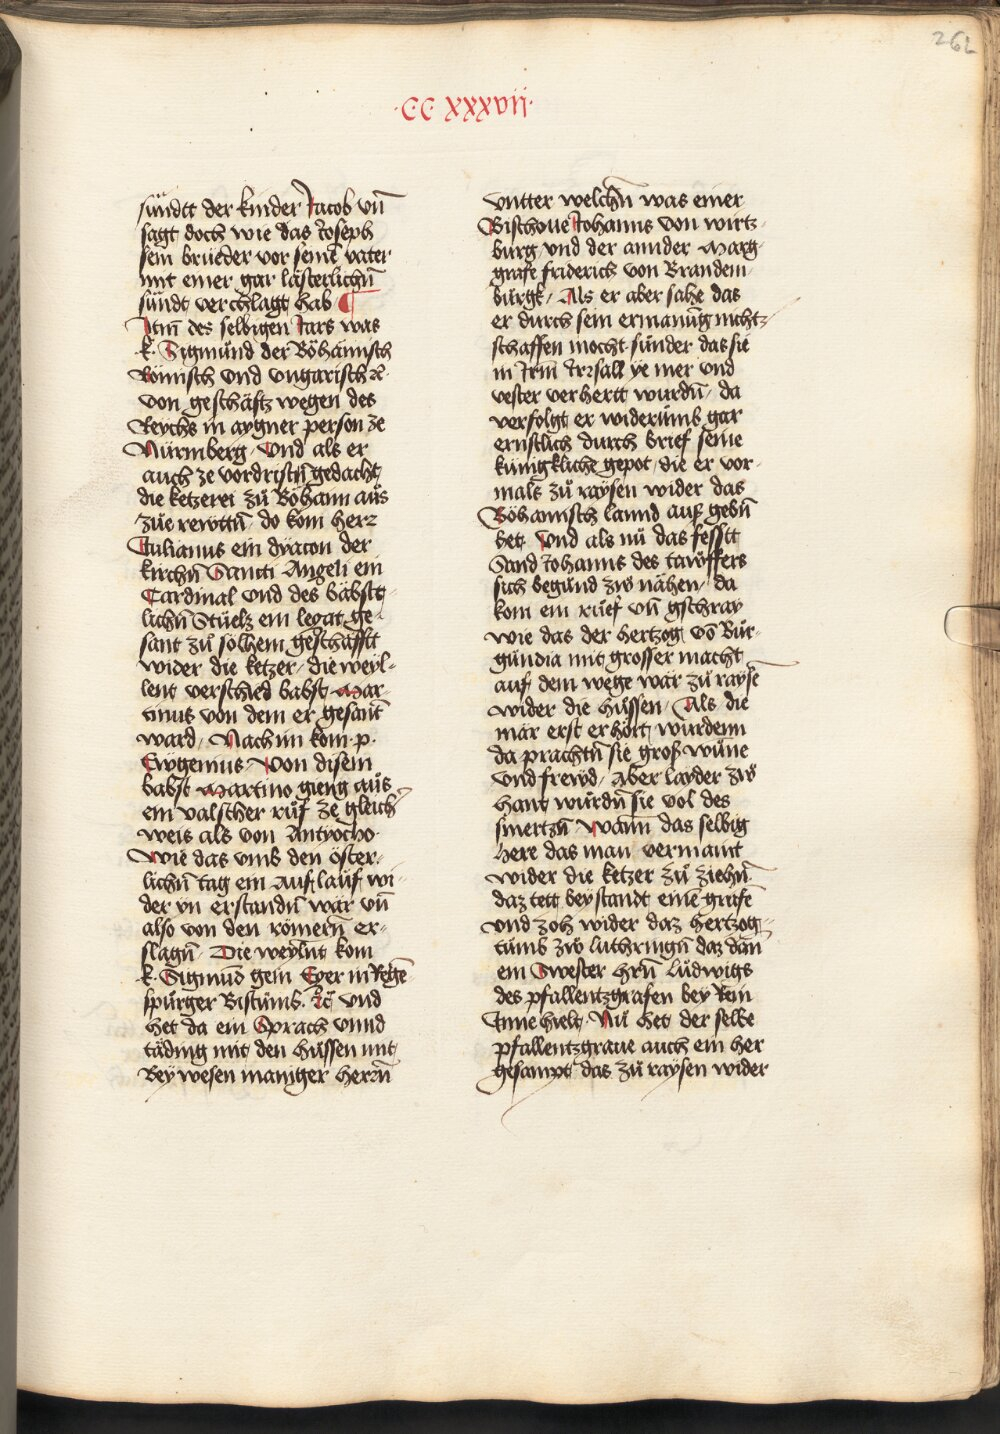 262
·CC xxxvij·
sündt der kinder Jacob vn̄
sagt doch wie das Joseph
sein brueder vor seinē vater
mit einer gar lästerlichn̄
sündt verchlagt hab
Itm̄ des selbigen Jars was
k. Sigmünd der Böhamisch
Römisch vnd vngarisch ꝛc.
von geschäftz wegen des
Reychs in aygner person ze
Nürmberg. Vnd als er
auch ze vordristn̄ gedacht
die ketzerei zů Böhaim aůs
zůe rewttn̄, do kom herr
Julianus ein dyacon der
kirchn̄ Sancti Angeli ein
Cardinal vnd des bäbstt-
lichn̄ Stüelz ein legat ge-
sant zů sölhem geschäfft
wider die ketzer, die weyl-
lent verschied babst Mar-
tinus von dem er gesant
ward, Nach im kom p.
Ewgenius. Von disem
babst Martino gieng aůs
ein valscher růf ze gleich
weis als von Antyocho.
Wie das vmb den öster-
lichn̄ tag ein Auflaüf wi-
der yn erstandn̄ wär vn̄
also von den römern̄ er-
slagn̄. Die weylnt kom
k. Sigmūd gein Eger in Regē-
spürger Bistumb. ꝛc̄ vnd
het da ein Sprach vnnd
täding mit den hüssen mit
Beywesen maniger herrn̄
vntter welchn̄ was einer
Bischoue Johanns von wirtz-
burg, vnd der annder Marg-
grafe friderich von Brandem-
bürgk, Als er aber sahe das
er durch sein ermanūg nichtz
schaffen mocht sünder das sie
in Irm̄ Irrsall ye mer vnd
vester verhertt wurdn̄, da
verfolgt er widerümb gar
ernstlich durch brief seine
künigkliche gepot, die er vor-
mals zů raysen wider das
Böhamisch lannd auß gebn̄
het. Vnd als nů das fesstt
Sand Johanns des tawffers
sich begünd zw nähen, da
kom ein rüef vn̄ gschray
wie das der hertzog vō Bür-
gündia mit grosser macht
auf dem wege wär zů raysē
wider die hüssen, Als die
mär erst erhört würdenn
da prachtn̄ sie groß wüne
vnd frewd, Aber layder zw
hant würdn̄ sie vol des
smertzn̄. Wann das selbig
here das man vermaint
wider die ketzer zů ziehn̄
daz tett beystandt einē grafē
vnd zoh wider daz hertzog-
tumb zw luthringn̄ daz dan̄
ein Swester hrn̄ lüdwigs
des pfallentzgrafen bey Rein
Inne hielt. Nů het der selbe
pfallentzgraue auch ein her
gesampt das zů raysen wider